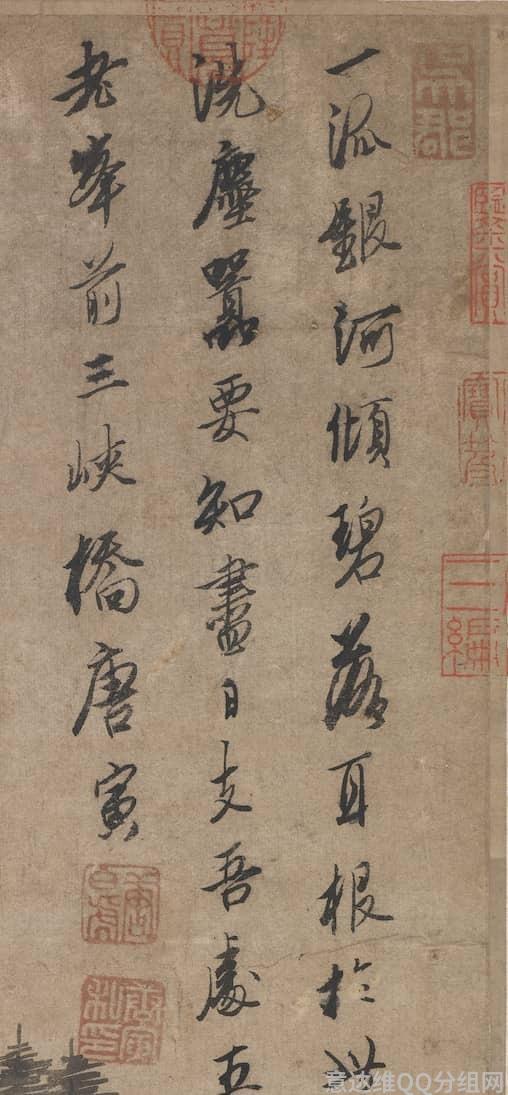 一泒銀河傾碧落耳根於此
洗塵囂要知盡日支吾處五
老峯前三峽橋唐寅
唐寅私印
意达维QQ分组网